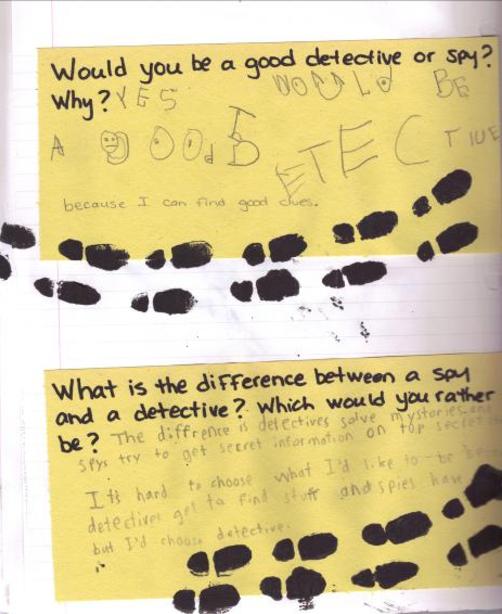 Would you be a good detective or spy?
Why? YES I WOULD BE
A GOOD DETECTIVE
because I can find good clues.
What is the difference between a spy
and a detective? Which would you rather
be? The diffrence is detectives solve mystories and
spys try to get secret information on top secret
It's hard to choose what I'd like to be
detectives get to find stuff and spies have
but I'd choose detective.